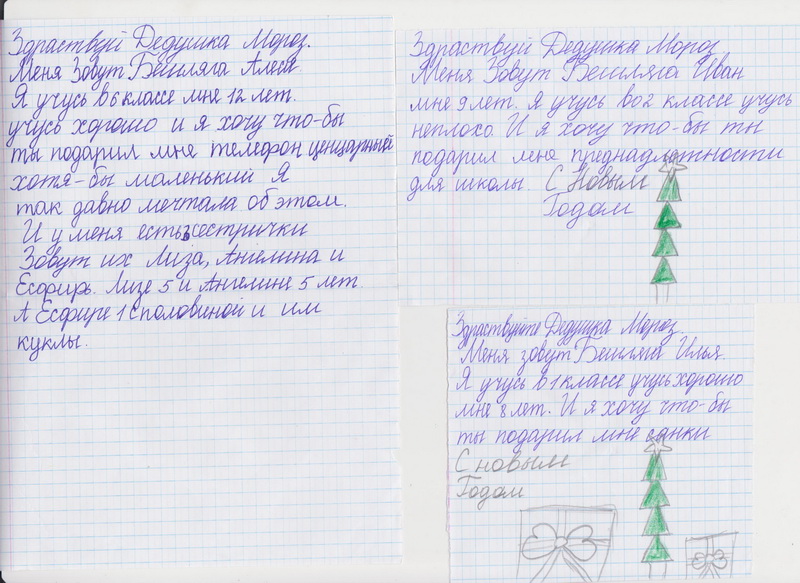 Здраствуй Дедушка Мороз.
Меня Зовут Бешляга Алеся.
Я учусь в 6 классе мне 12 лет.
учусь хорошо и я хочу что-бы
ты подарил мне телефон ценцарный
хотя-бы маленький Я
так давно мечтала об этом.
И у меня есть 3 сестрички
Зовут их Лиза, Ангелина и
Есфирь. Лизе 5 и Ангелине 5 лет.
А Есфире 1 споловиной и им
куклы.
Здраствуй Дедушка Мороз
Меня Зовут Бешляга Иван
мне 9 лет. Я учусь во 2 классе учусь
неплохо. И я хочу что-бы ты
подарил мне преднадлжтности
для школы. С Новым
Годом
Здраствуйте Дедушка Мороз.
Меня зовут Бешляга Илья.
Я учусь в 1 классе учусь хорошо
мне 8 лет. И я хочу что-бы
ты подарил мне санки
С новым
Годом